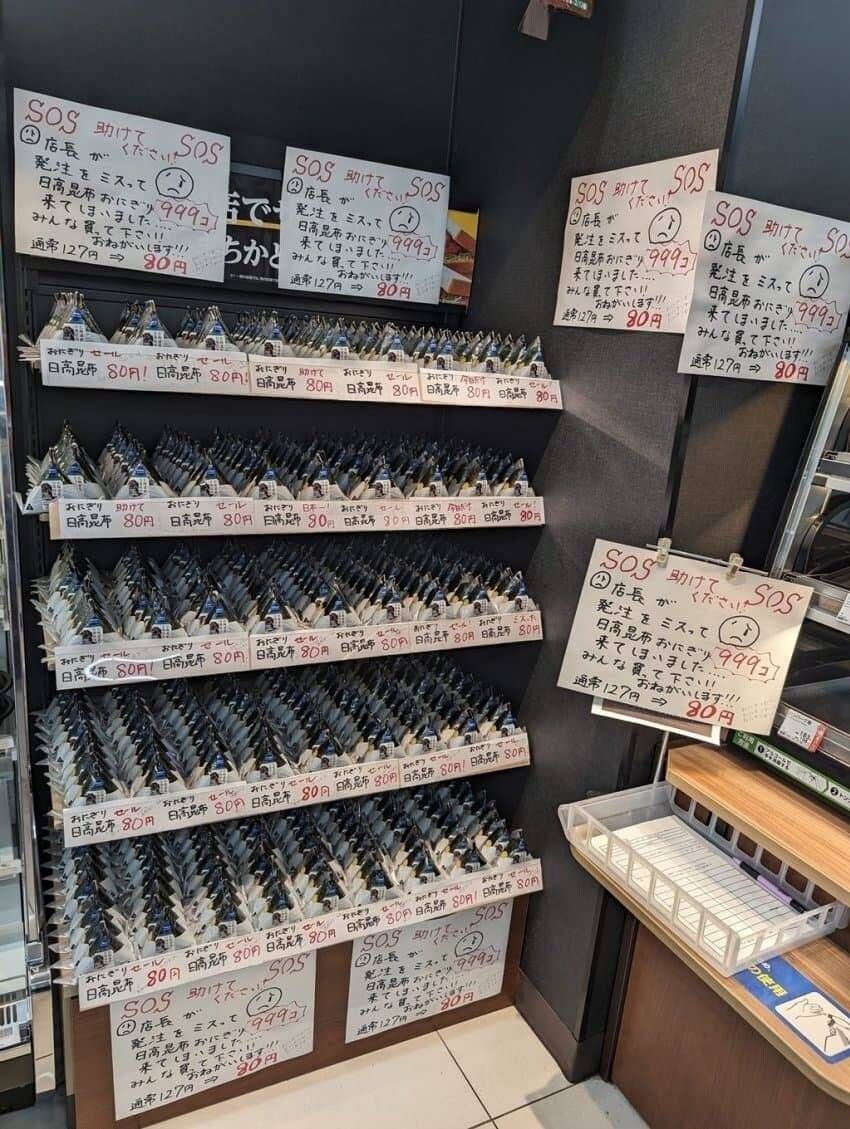 SOS 助けてください! SOS
店長が
発注をミスって
日高昆布おにぎり 999コ
来てしまいました....
みんな買って下さい!!
おねがいします!!!
通常127円 ⇒ 80円
SOS 助けてください! SOS
店長が
発注をミスって
日高昆布おにぎり 999コ
来てしまいました....
みんな買って下さい!!
おねがいします!!!
通常127円 ⇒ 80円
SOS 助けてください! SOS
店長が
発注をミスって
日高昆布おにぎり 999コ
来てしまいました....
みんな買って下さい!!
おねがいします!!!
通常127円 ⇒ 80円
SOS 助けてください! SOS
店長が
発注をミスって
日高昆布おにぎり 999コ
来てしまいました....
みんな買って下さい!!
おねがいします!!!
通常127円 ⇒ 80円
おにぎり セール おにぎり セール おにぎり 助けて おにぎり セール おにぎり 今日だけ おにぎり セール
日高昆布 80円! 日高昆布 80円! 日高昆布 80円 日高昆布 80円 日高昆布 80円 日高昆布 80円
おにぎり 助けて おにぎり セール おにぎり 日本一! おにぎり セール おにぎり 今日だけ おにぎり セール
日高昆布 80円 日高昆布 80円 日高昆布 80円 日高昆布 80円 日高昆布 80円 日高昆布 80円
おにぎり セール おにぎり セール おにぎり セール おにぎり セール おにぎり セール おにぎり ミスった
日高昆布 80円! 日高昆布 80円 日高昆布 80円 日高昆布 80円 日高昆布 80円 日高昆布 80円
SOS 助けてください! SOS
店長が
発注をミスって
日高昆布おにぎり 999コ
来てしまいました....
みんな買って下さい!!
おねがいします!!!
通常127円 ⇒ 80円
おにぎり セール おにぎり セール おにぎり セール おにぎり セール おにぎり セール おにぎり セール
日高昆布 80円 日高昆布 80円 日高昆布 80円 日高昆布 80円 日高昆布 80円 日高昆布 80円
おにぎり セール おにぎり セール おにぎり セール おにぎり セール おにぎり セール おにぎり セール
日高昆布 80円 日高昆布 80円 日高昆布 80円 日高昆布 80円 日高昆布 80円 日高昆布 80円
SOS 助けてください! SOS
店長が
発注をミスって
日高昆布おにぎり 999コ
来てしまいました....
みんな買って下さい!!
おねがいします!!!
通常127円 ⇒ 80円
SOS 助けてください! SOS
店長が
発注をミスって
日高昆布おにぎり 999コ
来てしまいました....
みんな買って下さい!!
おねがいします!!!
通常127円 ⇒ 80円
の使用